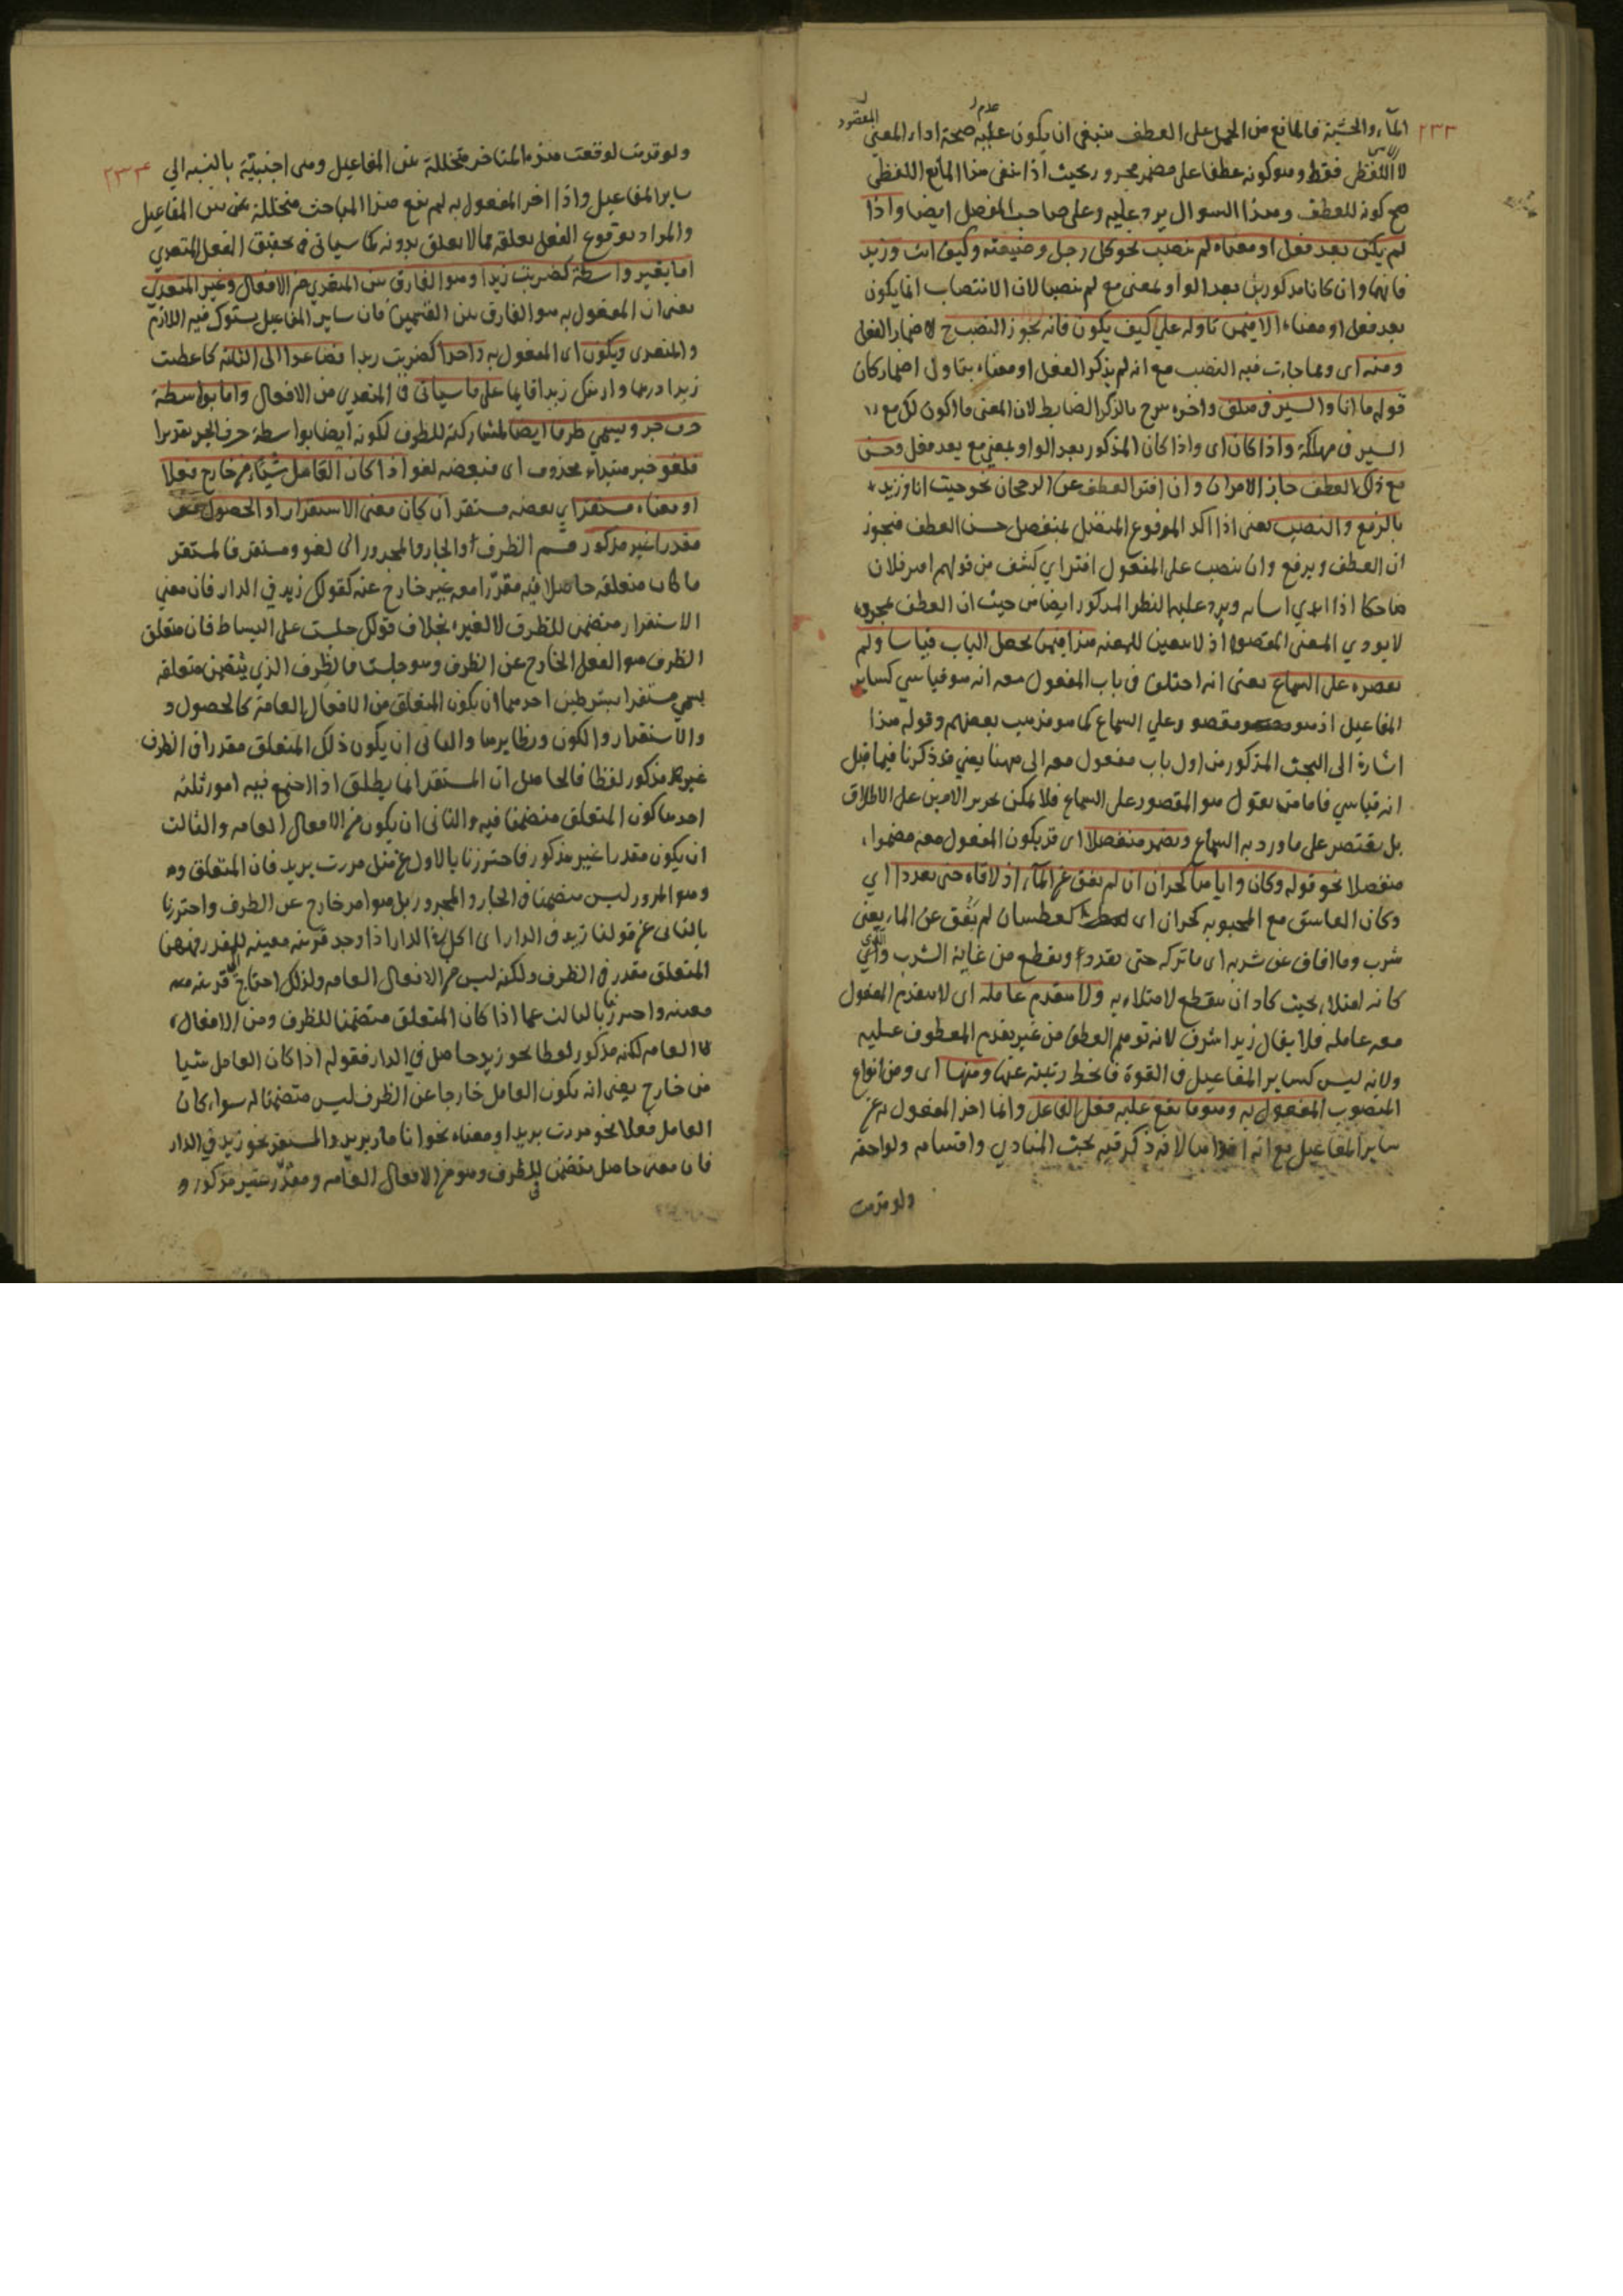 ٢٣٣
المآء والخشبة فالمانع من الحمل على العطف ينبغي ان يكون عدم صحة اداء المعنى المقصود
لا اللفظى فقط وهو كونه عطفا على مضمر مجرور بحيث اذا نفى هذا المانع اللفظى
صح كونه للعطف وهذا السوال يرد عليه وعلى صاحب المفصل ايضا واذا
لم يكن بعد فعل او معناه لم ينصب نحو كل رجل وضيعته وكيف انت وزيد
فانهما وان كانا مذكورين بعد الواو بمعنى مع لم ينصبا لان الانتصاب انما يكون
بعد فعل او معناه الا فيمن تاوله على كيف يكون فانه يجوز النصب ح لاضمار الفعل
ومنه اى ومما جاءت فيه النصب مع انه لم يذكر الفعل او معناه بتاول اضمار كان
قوله ما انا والسير فى متلف واخره برح بالذكر الضابط لان المعنى ما اكون لكن مع
السير فى مهلكة واذا كان اى واذا كان المذكور بعد الواو بمعنى مع بعد فعل وحسن
مع ذلك العطف جاز الامران وان افتر العطف عن الرجحان نحو جيت انا وزيد
بالرفع والنصب يعنى اذا اكد المرفوع المتصل بمنفصل حسن العطف فيجوز
ان العطف ويرفع وان ينصب على المفعول افتر اي كشف من قولهم افتر فلان
ضاحكا اذا ابدي اسنانه ويرد عليه النظر المذكور ايضا من حيث ان العطف بمجرده
لا يودي المعنى المقصود اذ لا يتعين للمعيه هذا فيمن يجعل الباب قياسا ولم
يقصره على السماع يعنى انه اختلف فى باب المفعول معه انه هو قياسي كساير
المفاعيل اذ هو مقصور علي السماع كما هو مذهب بعضهم وقوله هذا
اشارة الى البحث المذكور من اول باب مفعول معه الى ههنا يعني قد ذكرنا فيما قبل
انه قياسي فاما من يقول هو المقصور على السماع فلا يمكن تحرير الامرين على الاطلاق
بل يقتصر على ما ورد به السماع ويضمر منفصلا اى قد يكون المفعول معه مضمرا
منفصلا نحو قوله وكان واياها كحران ان لم يفق عن المآء اذ لاقاه حتى تقددا اي
وكان العاشق مع المحبوبه كحران اى كعطشان لم يفق عن الماء يعنى
شرب وما افاق عن شربه اى ما تركه حتى تقدد اى وتقطع من غاية الشرب والري
كانه امتلاء بحيث كاد ان ينقطع لامتلاءه به ولا يتقدم عامله اى لا يتقدم المفعول
معه عامله فلا يقال زيدا اشرف لانه توهم العطف من غير تقدم المعطوف عليه
ولانه ليس كساير المفاعيل فى القوة فانحط رتبته عنها ومنها اى ومن انواع
المنصوب المفعول به وهو ما يقع عليه فعل الفاعل وانما اخر المفعول به عن
ساير المفاعيل مع انه اقواها لانه ذكر فيه بحث المنادى واقسامه ولواحقه
ولو قدمت
٢٣٤
ولو قدمت لوقعت هذه المتاخر متخللة بين المفاعيل وهى اجنبيّة بالنسبه الي
ساير المفاعيل واذا اخر المفعول به لم يقع هذا المباحث متخللة بين المفاعيل
والمراد بوقوع الفعل تعلقه بما لا يعقل بدونه كما سياتى فى تحقيق الفعل المتعدي
اما بغير واسطة كضربت زيدا وهو الفارق بين المتعدي من الافعال وغير المتعدي
يعنى ان المفعول به هو الفارق بين القسمين فان ساير المفاعيل يستوى فيه اللازم
والمتعدى ويكون اى المفعول به واحدا كضربت زيدا فصاعدا الى الثلثة كاعطيت
زيدا درهما واريتك زيدا قايما على ما سياتى فى المتعدى من الافعال واما بواسطة
حرف جر ويسمي ظرفا ايضا لمشاركته للظرف لكونه ايضا بواسطة حرف الجر تقديرا
فلغو خبر مبتداء محذوف اى فبعضه لغو اذا كان العامل شيئا من خارج فعلا
او معناه ومستقر اي بعضه مستقر ان كان معنى الاستقرار او الحصول
مقدرا غير مذكور قسم الظرف او الجار والمجرور الى لغو ومستقر فالمستقر
ما كان متعلقه حاصلا فيه مقدّرا معه غير خارج عنه كقولك زيد في الدار فان معني
الاستقرار متضمن للظرف لا لغيره بخلاف قولك جلست على البساط فان متعلق
الظرف هو الفعل الخارج عن الظرف وهو جلست فالظرف الذي يتضمن متعلقه
يسمي مستقرا بشرطين احدهما ان يكون المتعلق من الافعال العامة كالحصول و
والاستقرار والكون ونظايرها والثانى ان يكون ذلك المتعلق مقدرا فى الظرف
غير مذكور لفظا فالحاصل ان المستقر انما يطلق اذا اجتمع فيه امور ثلثه
احدها كون المتعلق متضمنا فيه والثانى ان يكون من الافعال العامه والثالث
ان يكون مقدرا غير مذكور فاحترزنا بالاول عن مثل مررت بزيد فان المتعلق
وهو المرور ليس متضمنا فى الجار والمجرور بل هو امر خارج عن الظرف واحترزنا
بالثانى عن قولنا زيد فى الدار اى اكل فى الدار اذا وجد قرينه معينه
المتعلق مقدر فى الظرف ولكنه ليس من الافعال العامه ولذلك احتاج الى قرينه
معينه واحترزنا بالثالث عما اذا كان المتعلق متضمنا للظرف ومن الافعال
العامه لكنه مذكور لفظا نحو زيد حاصل في الدار فقوله اذا كان العامل شيا
من خارج يعنى انه يكون العامل خارجا عن الظرف ليس متضمنا له سواء كان
العامل فعلا نحو مررت بزيد او معناه نحو انا مار بزيد والمستقر نحو زيد في الدار
فان معنى حاصل متضمن في الظرف وهو من الافعال العامه ومقدّر غير مذكور و